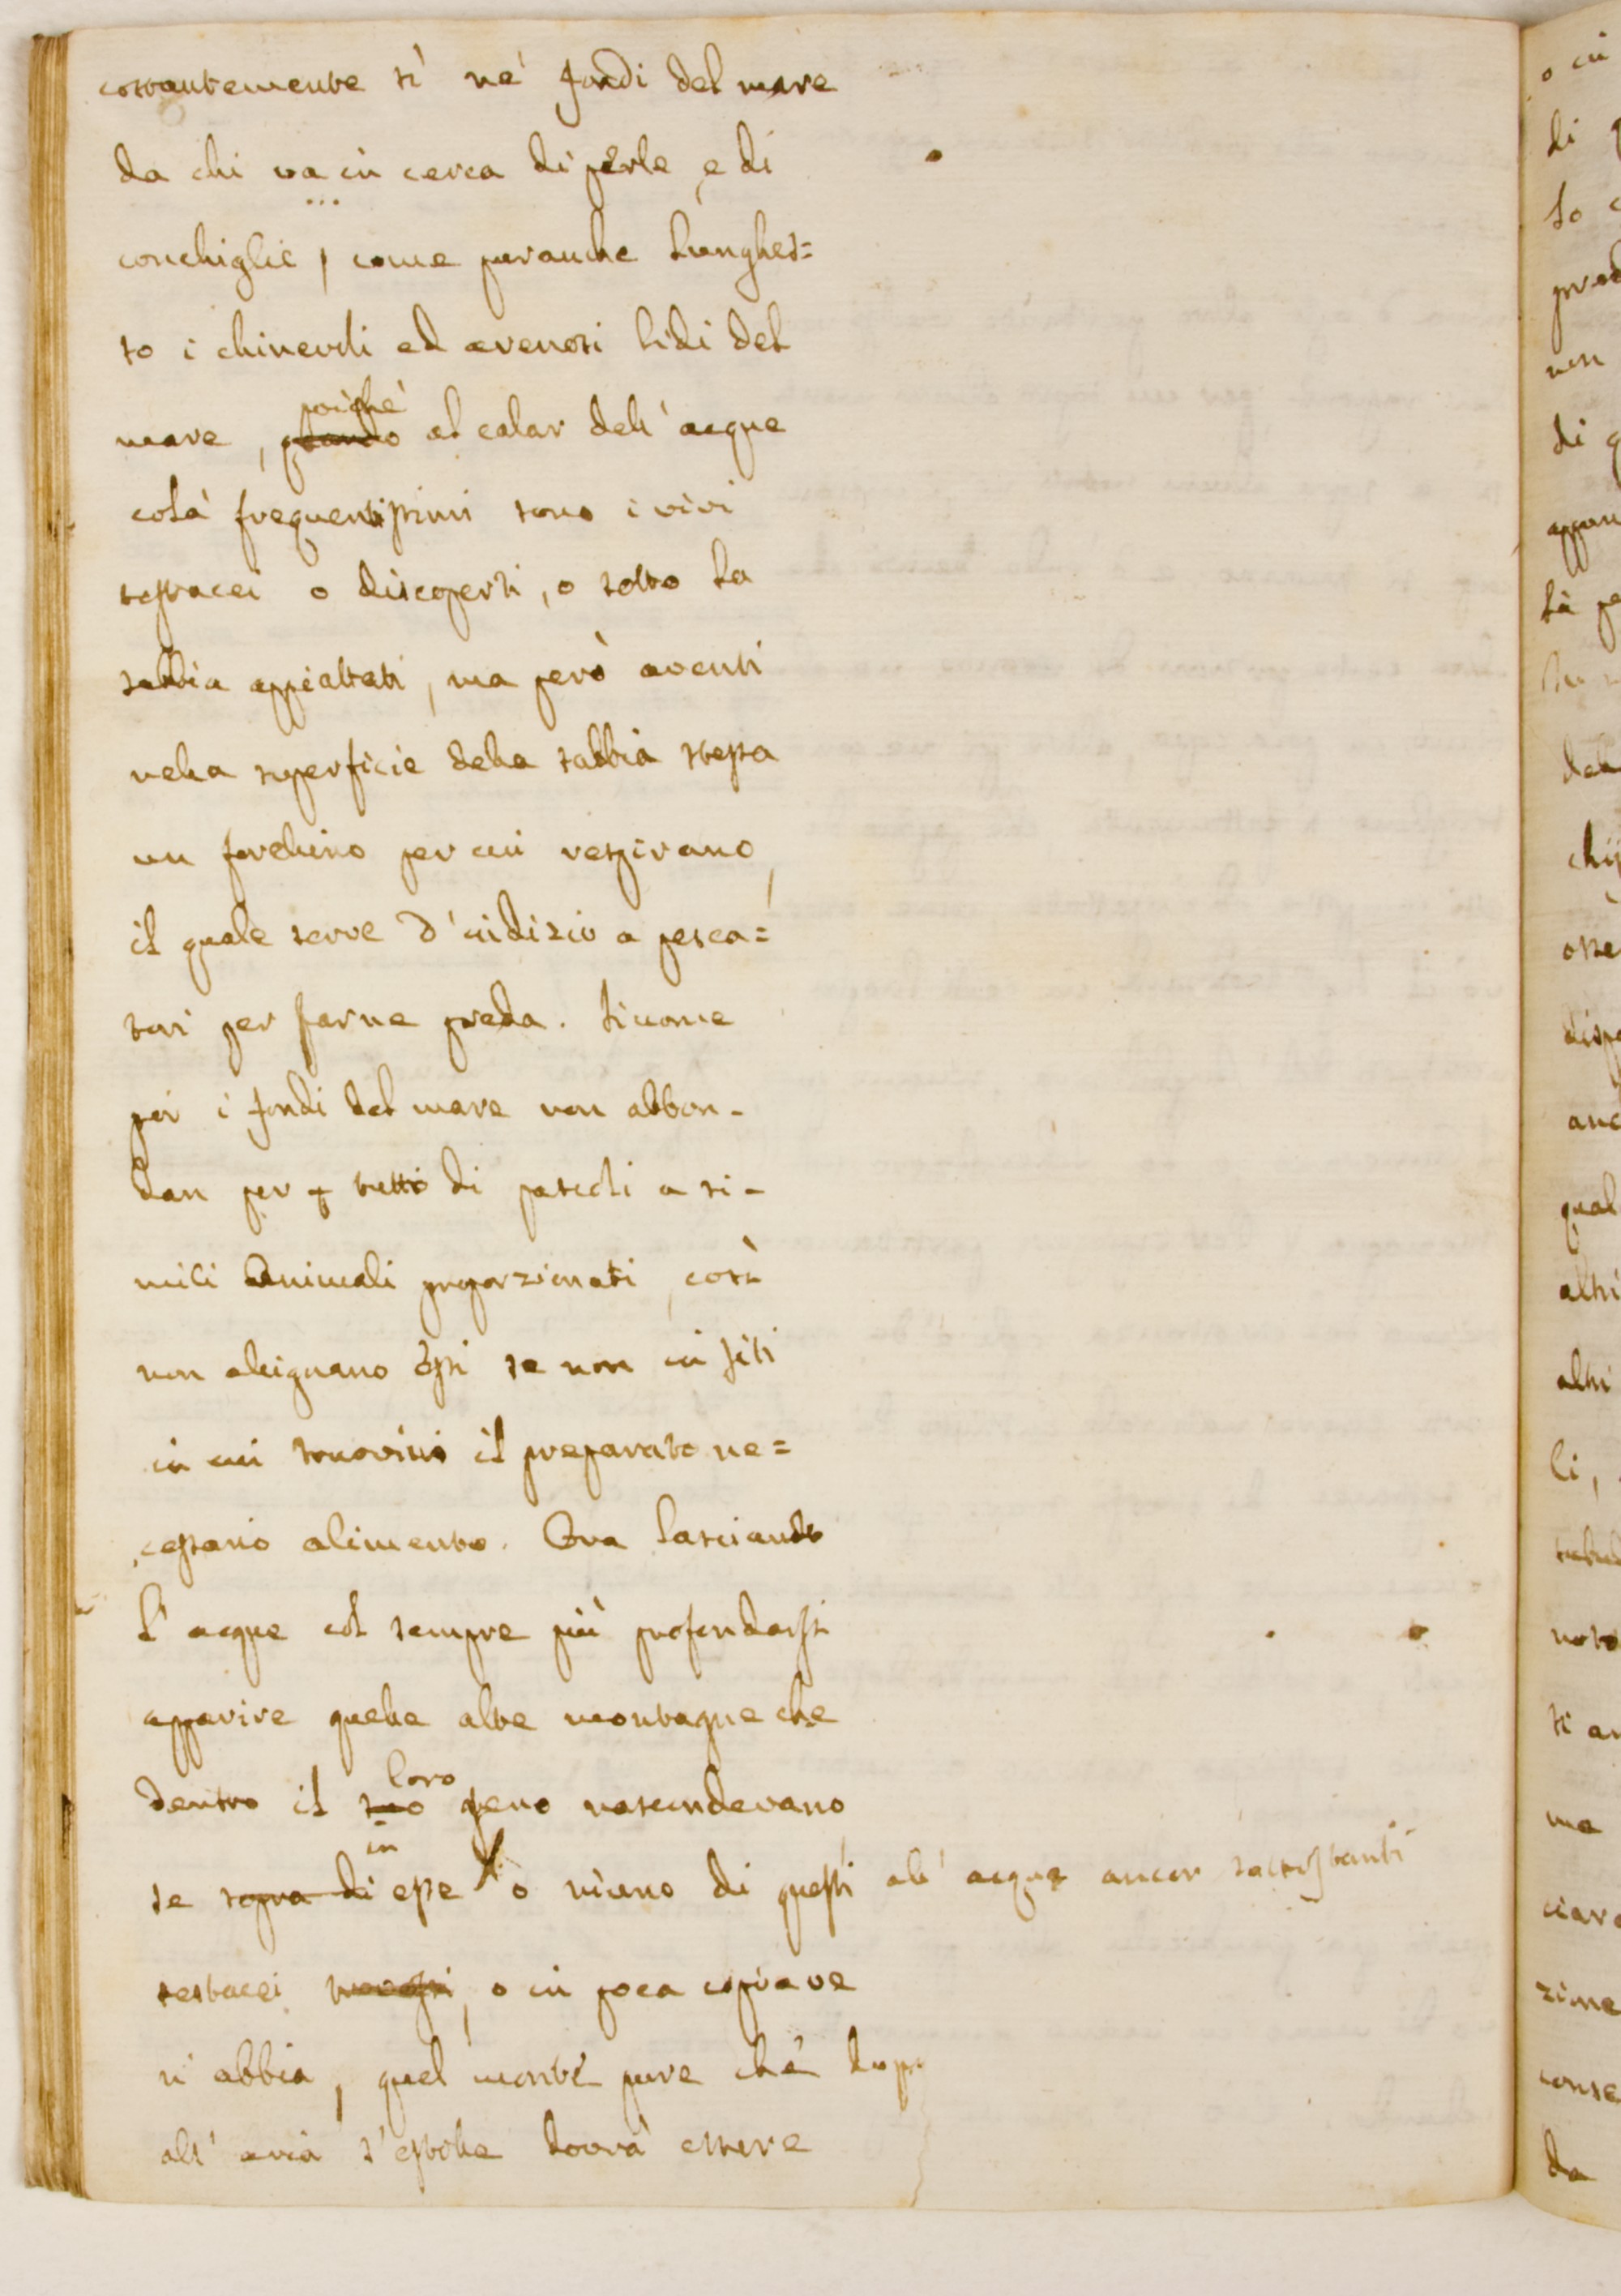 costantemente sì ne' fondi del mare
da chi va in cerca di perle, e di
conchiglie, come peranche lunghes=
so i chinevoli ed arenosi lidi del
mare, quando poichè al calar dell'acque
colà frequentissimi sono i vivi
testacei o discoperti, o sotto la
sabbia appiattati, ma però aventi
nella superficie della sabbia stessa
un forellino per cui respirano,
il quale serve d'indizio a pesca=
tori per farne preda. Siccome
poi i fondi del mare non abbon-
dan per tutto di pascoli a si-
mili animali proporzionati, così
non allignano essi se non in siti
in cui trovino il preparato ne=
cessario alimento. Ora lasciando
l'acque col sempre più profondarsi
apparire quelle alte montagne che
dentro il suo loro seno nascondevano
se sopra di in esse o niuno di questi all'acque ancor sottostanti
testacei, o in poca copia ve
n'abbia, quel monte pure che dopo
all'aria s'estolle dovrà essere
o in
di
lo
pred
non
di q
appun
là pe
del
chi
osse
dispo
anc
qual
altri
altri
li,
noto
si an
ma
ciare
zione
conse
da